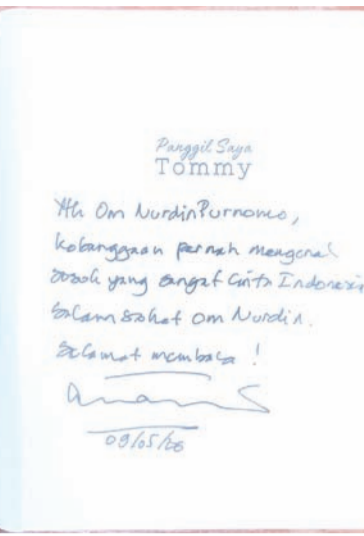 Panggil Saya
Tommy
Yth Om Nurdin Purnomo,
kebanggaan pernah mengenal
sosok yang sangat Cinta Indonesia
Salam sehat om Nurdin.
Selamat membaca !
09/05/26